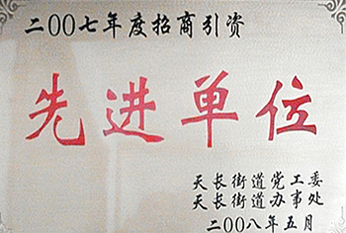 二〇〇七年度招商引资
先进单位
天长街道党工委
天长街道办事处
二〇〇八年五月